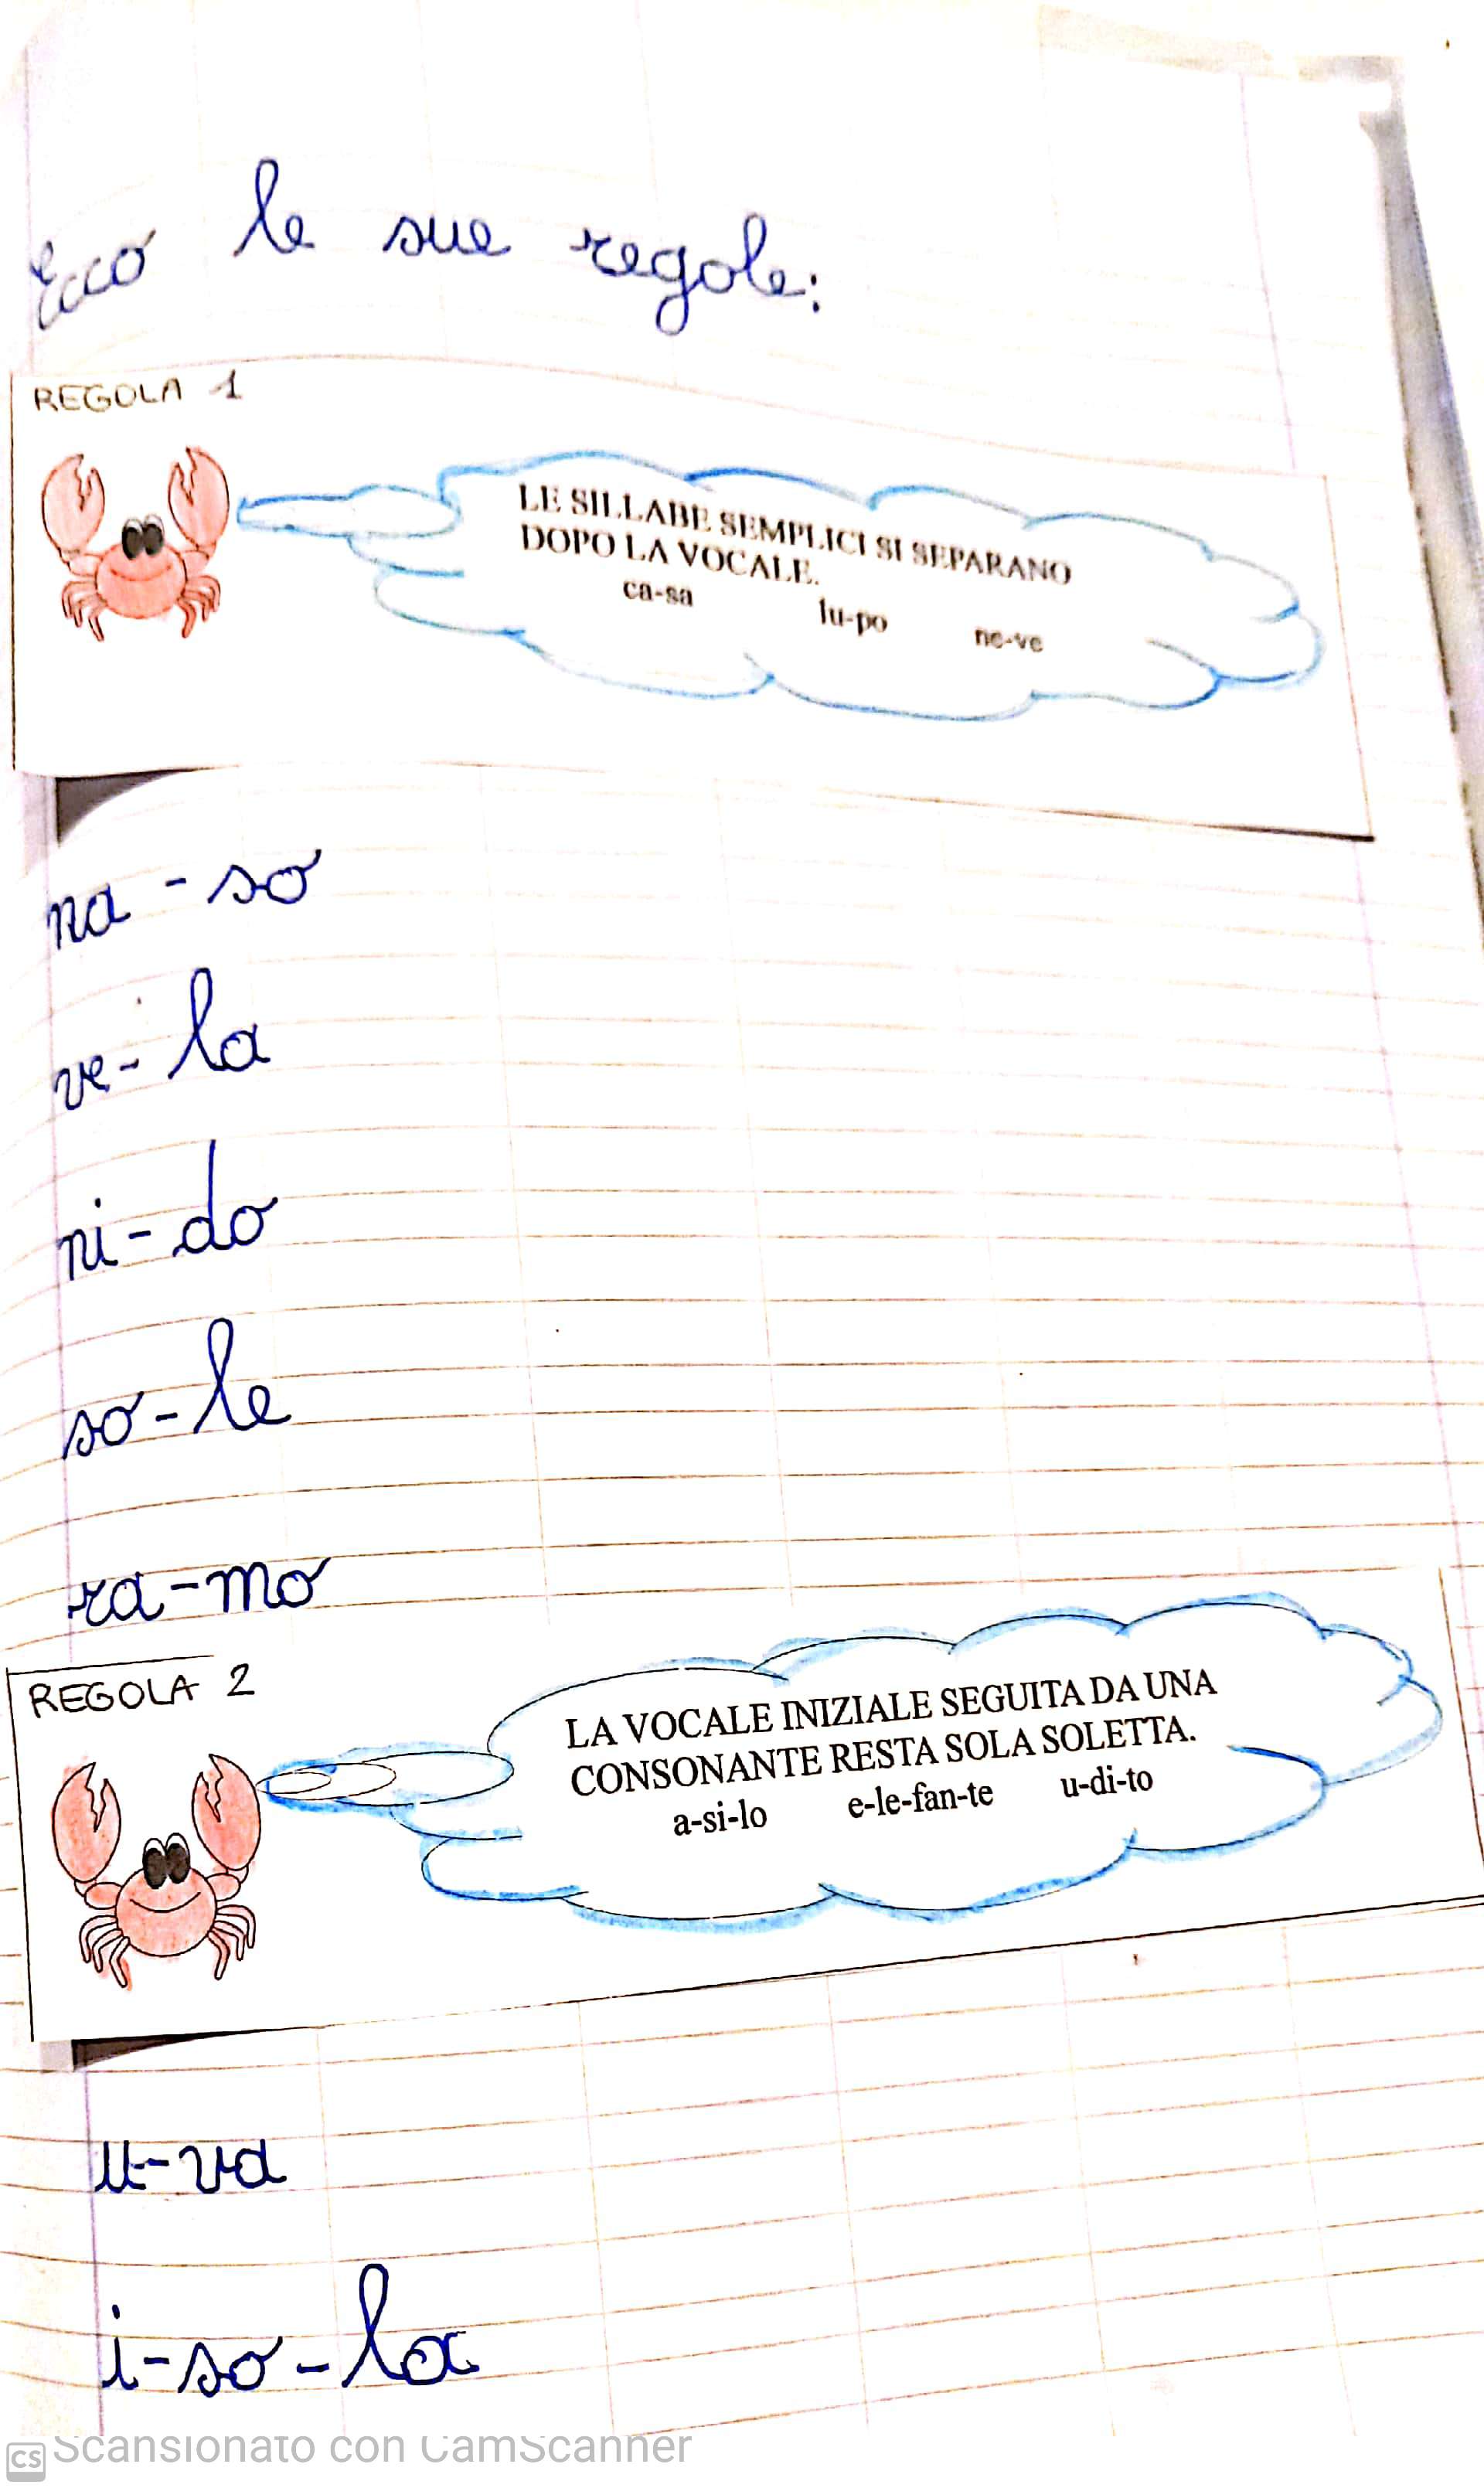 Ecco le sue regole:
REGOLA 1
LE SILLABE SEMPLICI SI SEPARANO
DOPO LA VOCALE.
ca-sa lu-po ne-ve
na - so
ve- la
ni- do
so- le
ra-mo
REGOLA 2
LA VOCALE INIZIALE SEGUITA DA UNA
CONSONANTE RESTA SOLA SOLETTA.
a-si-lo e-le-fan-te u-di-to
u-va
i-so-la
CS Scansionato con CamScanner